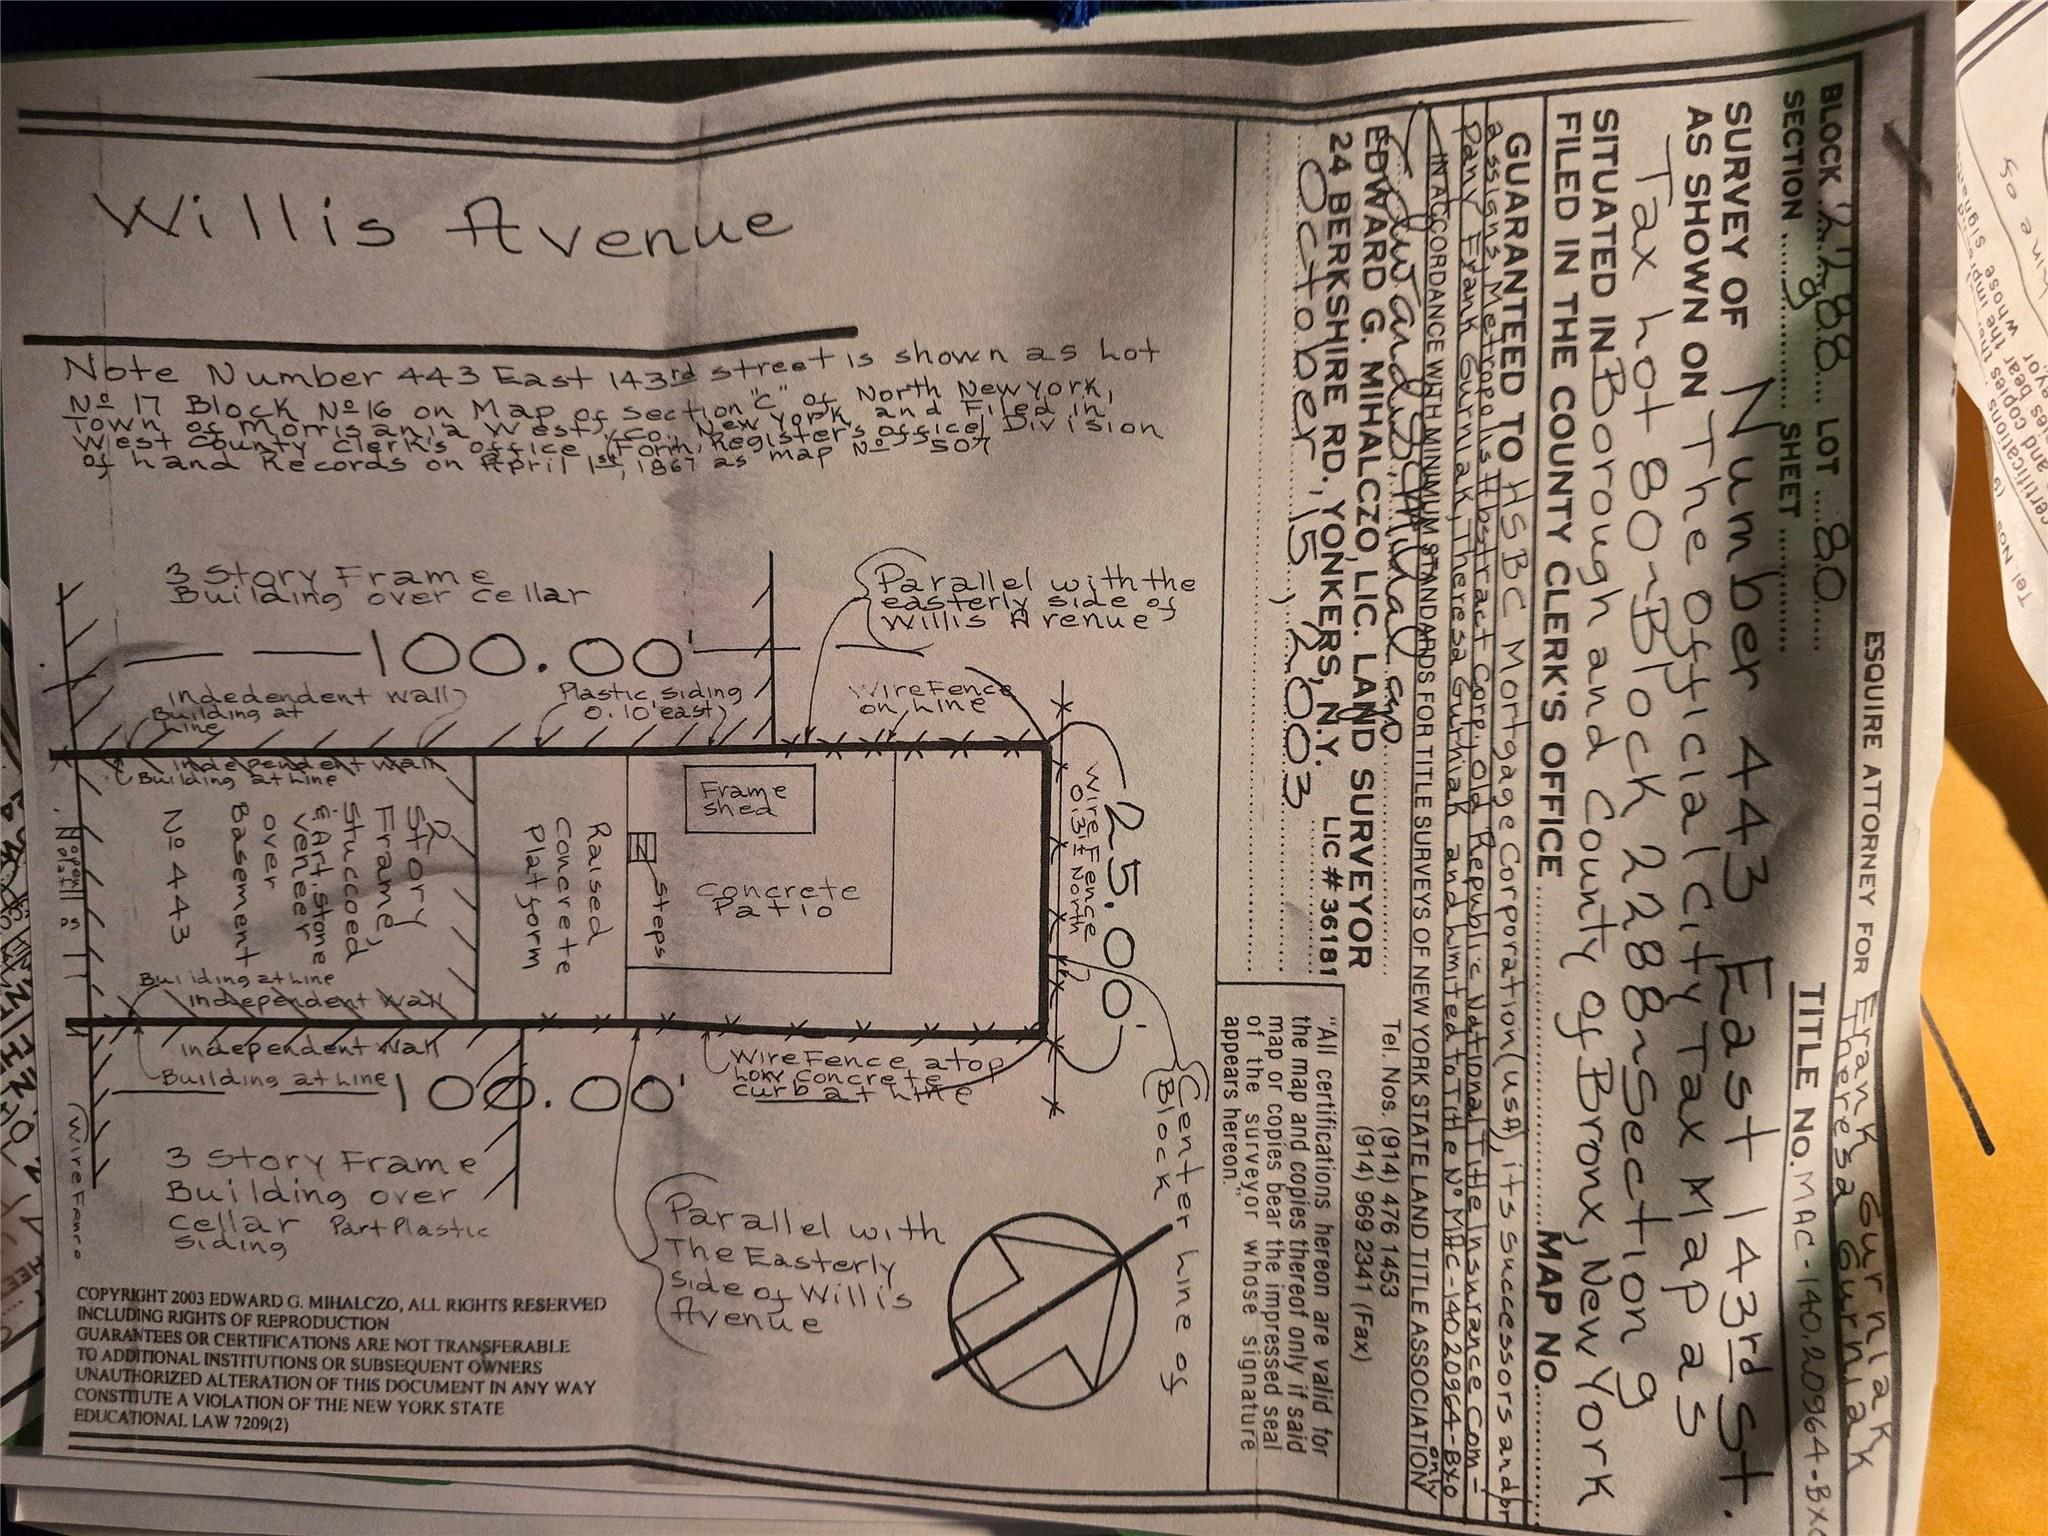 BLOCK 2288 LOT 80
SECTION 9 SHEET
ESQUIRE ATTORNEY FOR Frank Gurniak
Theresa Gurniak
TITLE NO. MAC-140.20964-BX
SURVEY OF Number 443 East 143rd St.
AS SHOWN ON The official City Tax Map as
Tax Lot 80~Block 2288~Section 9
SITUATED IN Borough and County of Bronx, New York
FILED IN THE COUNTY CLERK'S OFFICE MAP NO.
GUARANTEED TO HSBC Mortgage Corporation (USA), its successors and/or
assigns, Metropolis Abstract Corp., Old Republic National Title Insurance Com-
pany, Frank Gurniak, Theresa Gurniak and Limited to Title No MAC-140.20964-BX only
IN ACCORDANCE WITH MINIMUM STANDARDS FOR TITLE SURVEYS OF NEW YORK STATE LAND TITLE ASSOCIATION
EDWARD G. MIHALCZO, LIC. LAND SURVEYOR
24 BERKSHIRE RD., YONKERS, N.Y. LIC # 36181
Tel. Nos. (914) 476 1453
(914) 969 2341 (Fax)
October 15, 2003
"All certifications hereon are valid for
the map and copies thereof only if said
map or copies bear the impressed seal
of the surveyor whose signature
appears hereon."
Willis Avenue
Note Number 443 East 143rd street is shown as Lot
No 17 Block No 16 on Map of Section "C" of North New York,
Town of Morrisania West, Co. New York and Filed in
West County Clerk's office (Form. Register's office) Division
of Land Records on April 1st, 1867 as map No 507
3 Story Frame
Building over cellar
100.00'
Parallel with the
easterly side of
Willis Avenue
Independent Wall
Building at
Line
Plastic siding
0.10' east
Wire Fence
on Line
Independent Wall
Building at Line
No 443
2 Story
Frame,
Stuccoed
& Art. Stone
Veneer
over
Basement
Raised
Concrete
Platform
Steps
Frame
shed
Concrete
Patio
Wire Fence
0.3'± North
25.00'
Center Line of
Block
Building at Line
Independent Wall
Independent Wall
Building at Line
100.00'
Wire Fence atop
Low Concrete
curb at Line
3 Story Frame
Building over
cellar Part Plastic
siding
Parallel with
The Easterly
side of Willis
Avenue
COPYRIGHT 2003 EDWARD G. MIHALCZO, ALL RIGHTS RESERVED
INCLUDING RIGHTS OF REPRODUCTION
GUARANTEES OR CERTIFICATIONS ARE NOT TRANSFERABLE
TO ADDITIONAL INSTITUTIONS OR SUBSEQUENT OWNERS
UNAUTHORIZED ALTERATION OF THIS DOCUMENT IN ANY WAY
CONSTITUTE A VIOLATION OF THE NEW YORK STATE
EDUCATIONAL LAW 7209(2)